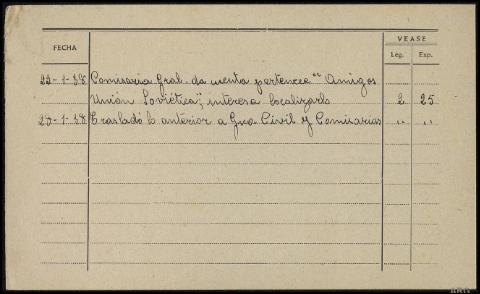 VEASE
FECHA
Leg. Exp.
22-1-38 Comisaria Gral. da cuenta pertenece "Amigos
Unión Soviética", interesa localizarlo 2 25
28-1-38 Trasladó lo anterior a Gno. Civil y Comisarias " "